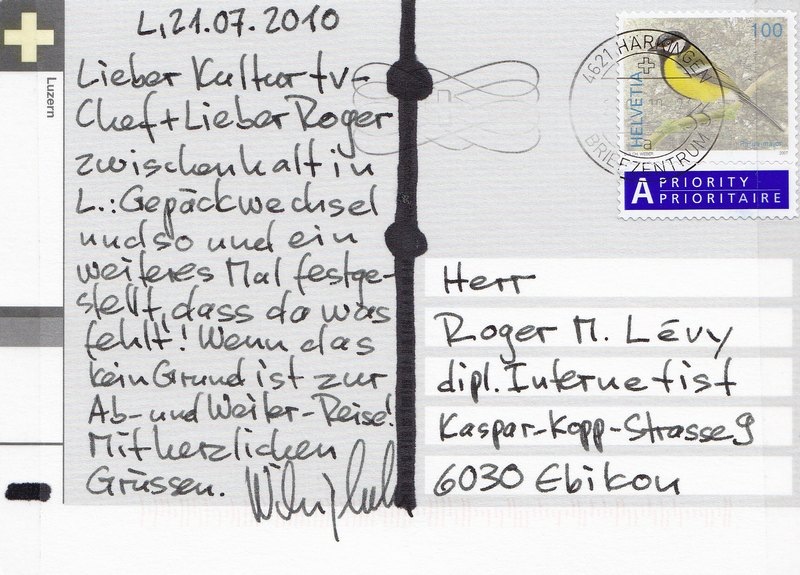 L, 21.07.2010
Lieber Kultur tv-
Chef + Lieber Roger
zwischenhalt in
L.: Gepäckwechsel
und so und ein
weiteres Mal festge-
stellt, dass da was
fehlt! Wenn das
kein Grund ist zur
Ab- und Weiter-Reise!
Mit herzlichen
Grüssen.
Luzern
100
HELVETIA
Parus major
2007
4621 HÄRKINGEN
BRIEFZENTRUM
a
A PRIORITY
PRIORITAIRE
Herr
Roger M. Lévy
dipl. Internetist
Kaspar-Kopp-Strasse 9
6030 Ebikon